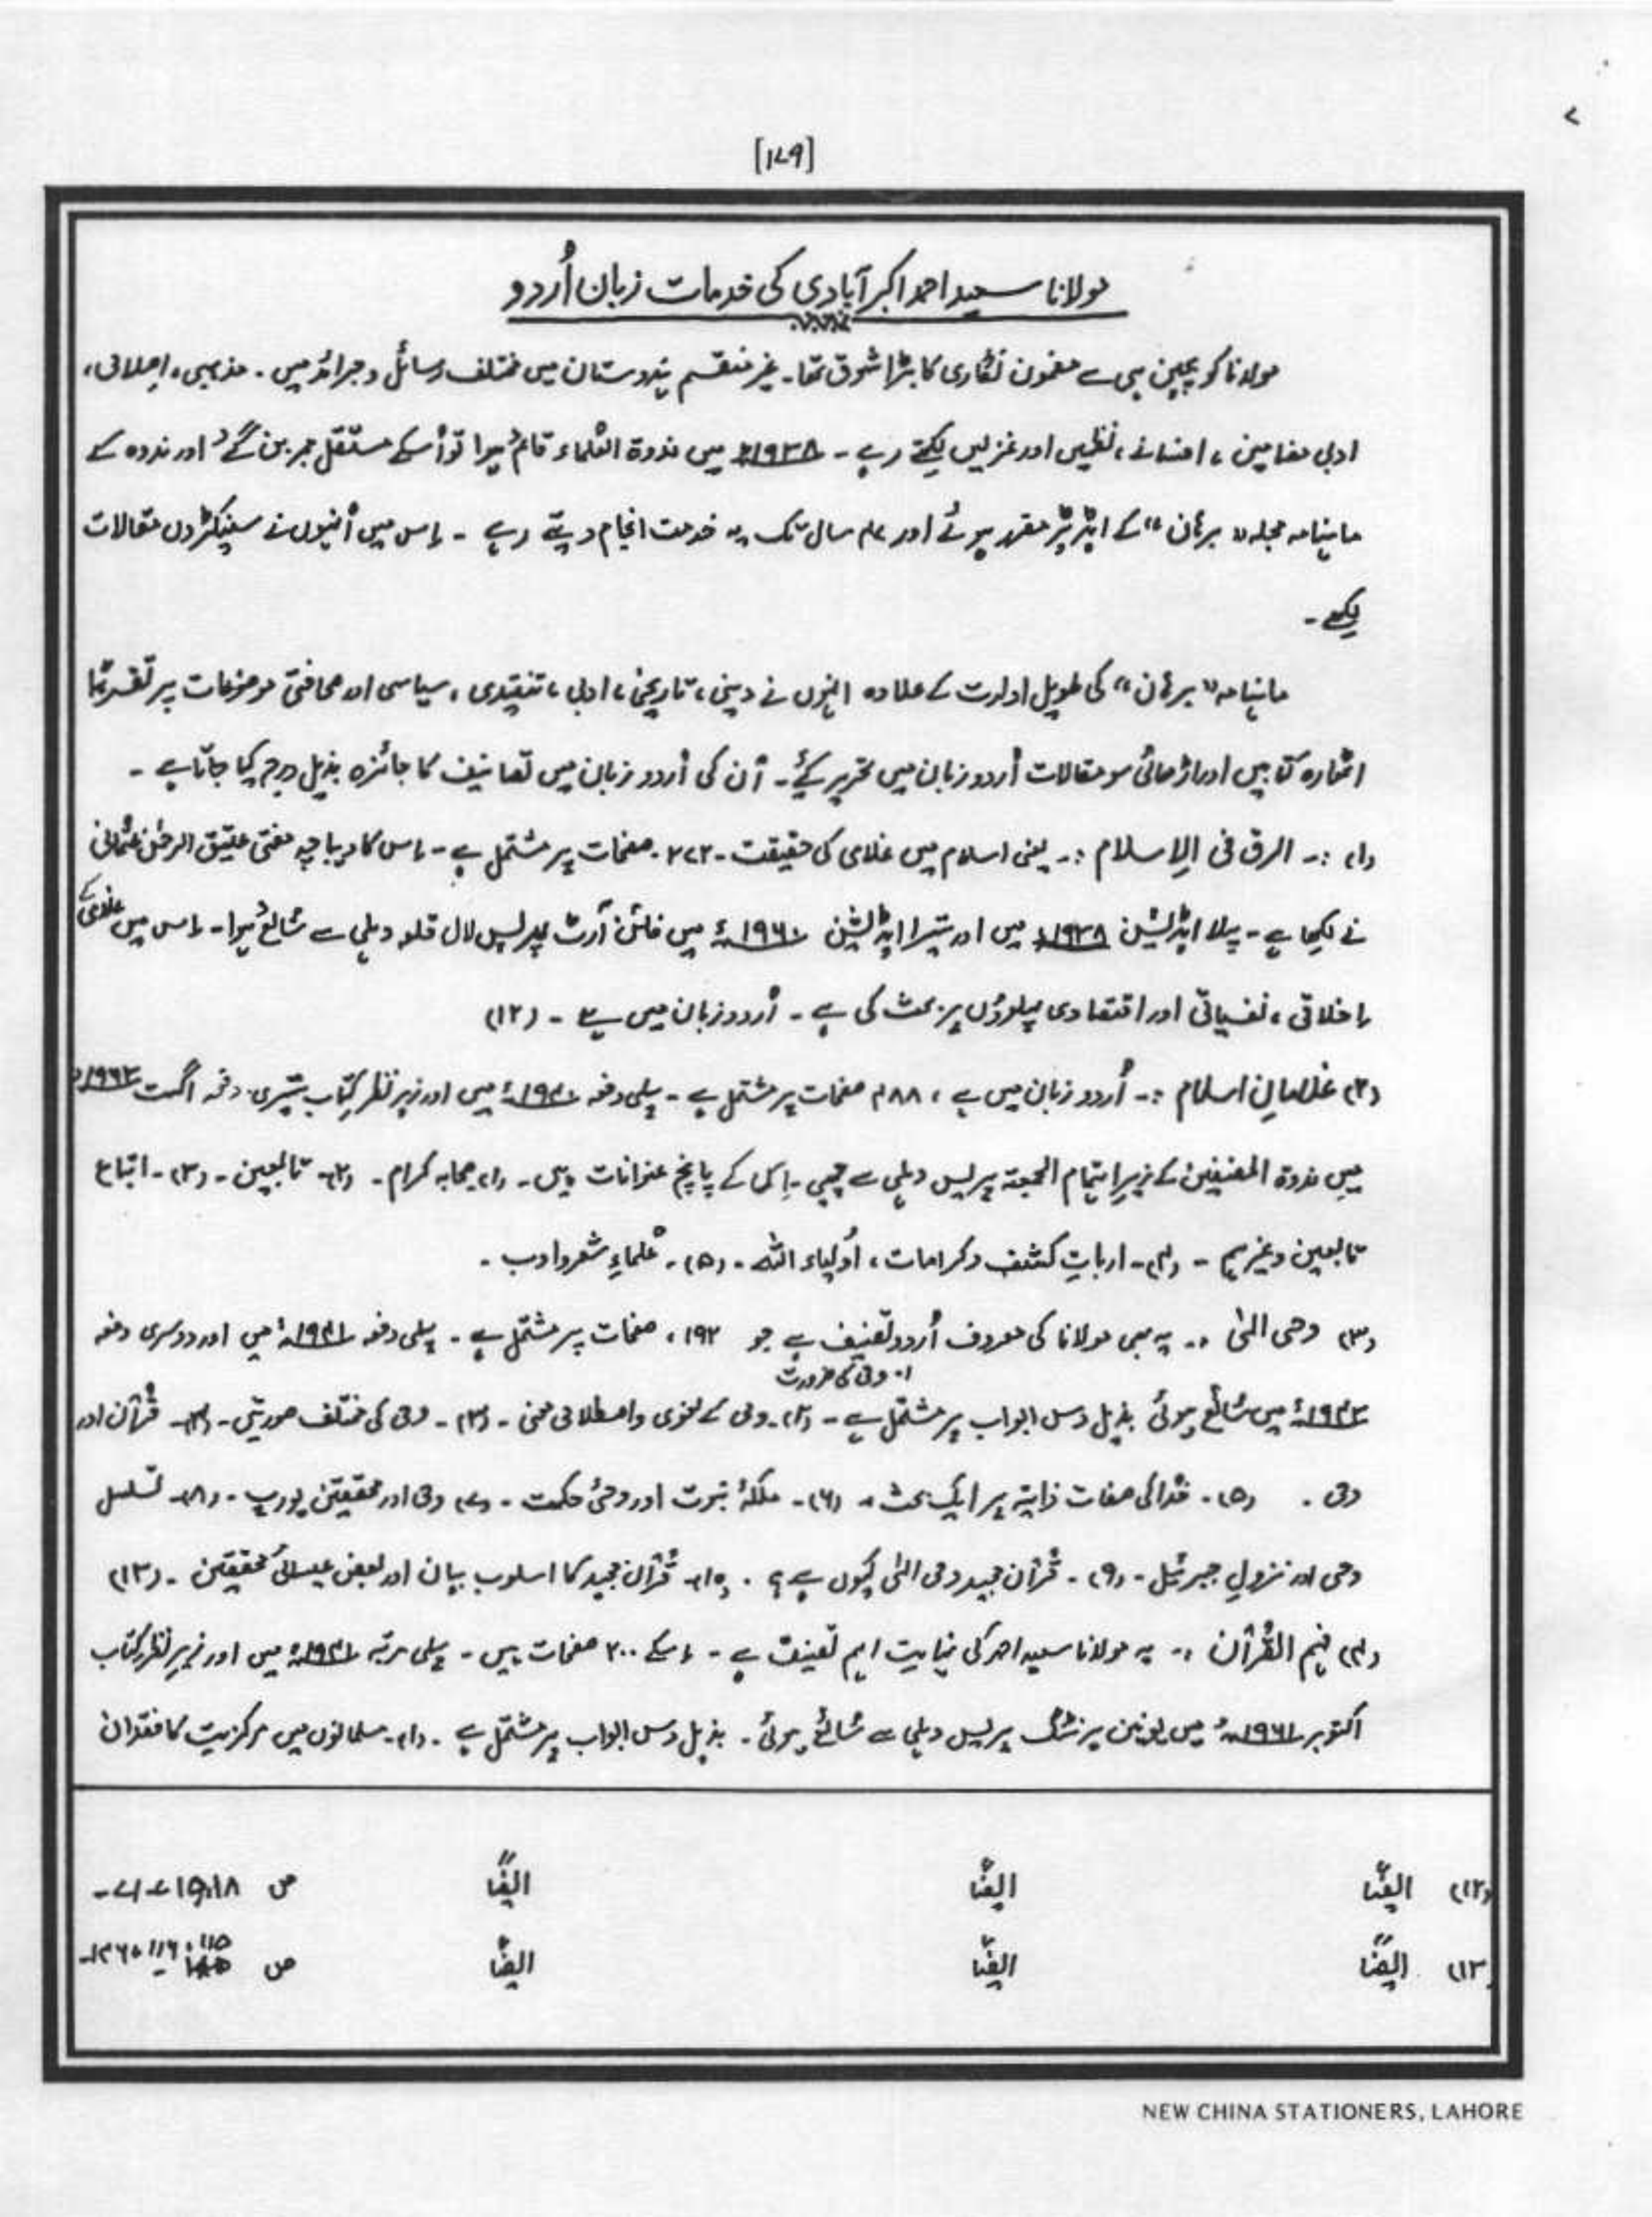 [۱۷۹]
مولانا سعید احمد اکبر آبادی کی خدمات زبان اُردو
مولانا کو بچپن ہی سے مضمون نگاری کا بڑا شوق تھا۔ غیر منقسم ہندوستان میں مختلف رسائل و جرائد میں۔ مذہبی، اصلاحی،
ادبی مضامین، افسانے، نظمیں اور غزلیں لکھتے رہے۔ ۱۹۳۸ء میں ندوۃ العلماء قائم ہوا تو اُسکے مستقل ممبر بن گئے اور ندوہ کے
ماہنامہ مجلہ "برہان" کے ایڈیٹر مقرر ہوئے اور سال تک یہ خدمت انجام دیتے رہے۔ اِس میں اُنہوں نے سینکڑوں مقالات
لکھے۔
ماہنامہ "برہان" کی طویل ادارت کے علاوہ انہوں نے دینی، تاریخی، ادبی، تنقیدی، سیاسی اور صحافتی موضوعات پر تقریبًا
اٹھارہ کتابیں اور اڑھائی سو مقالات اُردو زبان میں تحریر کیۓ۔ اُن کی اُردو زبان میں تصانیف کا جائزہ بذیل درج کیا جاتا ہے۔
(۱) :۔ الرق فی الاِسلام :۔ یعنی اسلام میں غلامی کی حقیقت۔ ۲۷۲۔ صفحات پر مشتمل ہے۔ اِس کا دیباچہ مفتی عتیق الرحمٰن عثمانی
نے لکھا ہے۔ پہلا ایڈیشن ۱۹۳۸ء میں اور تیسرا ایڈیشن ۱۹۶۰ء میں فائن آرٹ پریس لال قلعہ دہلی سے شائع ہوا۔ اِس میں غلامی کے
اِخلاقی، نفسیاتی اور اقتصادی پہلوؤں پر بحث کی ہے۔ اُردو زبان میں ہے۔ (۱۲)
(۲) غلامانِ اسلام :۔ اُردو زبان میں ہے، ۴۸۸ صفحات پر مشتمل ہے۔ پہلی دفعہ ۱۹۴۰ء میں اور زیر نظر کتاب تیسری دفعہ اگست ۱۹۶۲ء
میں ندوۃ المصنفین کے زیرِ اہتمام الجمعیۃ پریس دہلی سے چھپی۔ اِس کے پانچ عنوانات ہیں۔ (۱) صحابہ کرام۔ (۲)۔ تابعین۔ (۳)۔ اتباع
تابعین وغیرہم۔ (۴)۔ اربابِ کشف و کرامات، اَولیاء اللہ۔ (۵)۔ عُلماءِ شعر و ادب۔
(۳) وحی الہٰی :۔ یہ بھی مولانا کی معروف اُردو تصنیف ہے جو ۱۹۲، صفحات پر مشتمل ہے۔ پہلی دفعہ ۱۹۴۱ء میں اور دوسری دفعہ
۱۔ وحی کی ضرورت
میں شائع ہوئی بذیل دس ابواب پر مشتمل ہے۔ (۲)۔ وحی کے لغوی و اصطلاحی معنی۔ (۳)۔ وحی کی مختلف صورتیں۔ (۴)۔ قُرآن اور
وحی۔ (۵)۔ خُدا کی صفات ذاتیہ پر ایک بحث۔ (۶)۔ ملکۂ نبوت اور وحیٔ حکمت۔ (۷) وحی اور محققینِ یورپ۔ (۸)۔ تسلسل
وحی اور نزولِ جبرئیل۔ (۹)۔ قُرآن مجید وحی الہٰی کیوں ہے؟۔ (۱۰)۔ قُرآن مجید کا اسلوب بیان اور بعض عیسائی محققین۔ (۱۳)
(۴) فہم القُرآن :۔ یہ مولانا سعید احمد کی نہایت اہم تصنیف ہے۔ اِسکے ۲۰۰ صفحات ہیں۔ پہلی مرتبہ ۱۹۴۱ء میں اور زیرِ نظر کتاب
اکتوبر ۱۹۶۱ء میں یونین پرنٹنگ پریس دہلی سے شائع ہوئی۔ بذیل دس ابواب پر مشتمل ہے۔ (۱)۔ مسلمانوں میں مرکزیت کا فقدان
(۱۲) ایضًا ایضًا ایضًا ص
(۱۳) ایضًا ایضًا ایضًا ص
NEW CHINA STATIONERS, LAHORE